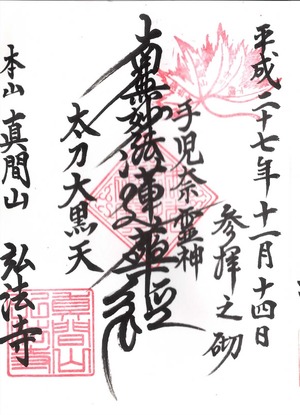 平成二十七年十一月十四日
参拝之砌
手児奈霊神
南無妙法蓮華経
太刀大黒天
本山 真間山 弘法寺